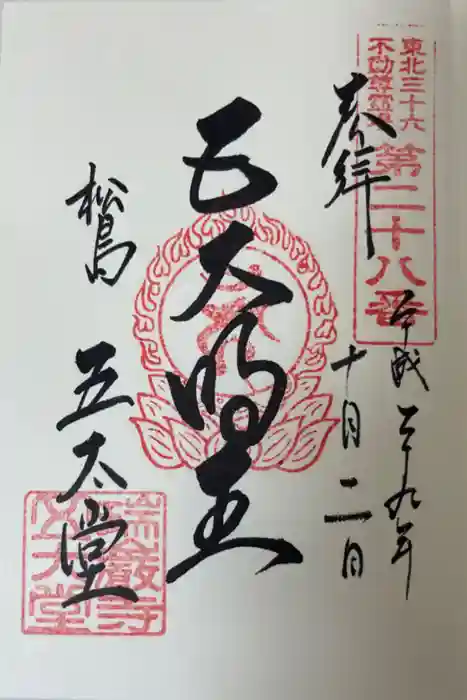 東北三十六
不動尊霊場
第二十八番
奉拝
平成二十九年
十月二日
五大明王
松島
五大堂
瑞巌寺
五大堂